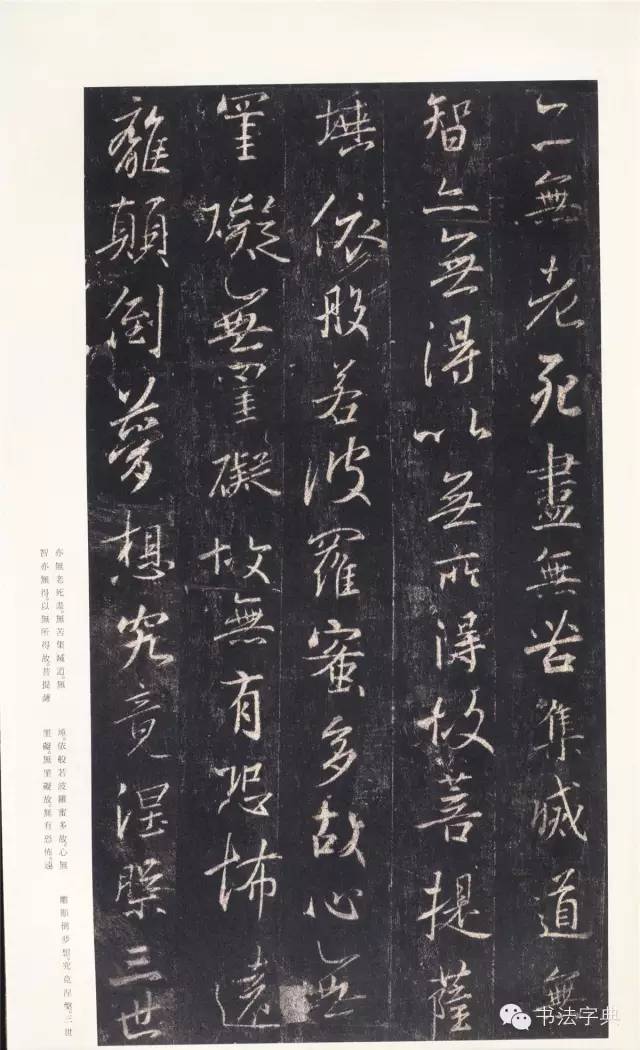 亦無老死盡無苦集滅道無
智亦無得以無所得故菩提薩
埵依般若波羅蜜多故心無
罣礙無罣礙故無有恐怖遠
離顛倒夢想究竟涅槃三世
亦無老死盡。無苦集滅道。無
智亦無得。以無所得故。菩提薩
埵。依般若波羅蜜多故。心無
罣礙。無罣礙故。無有恐怖。遠
離顛倒夢想。究竟涅槃。三世
书法字典